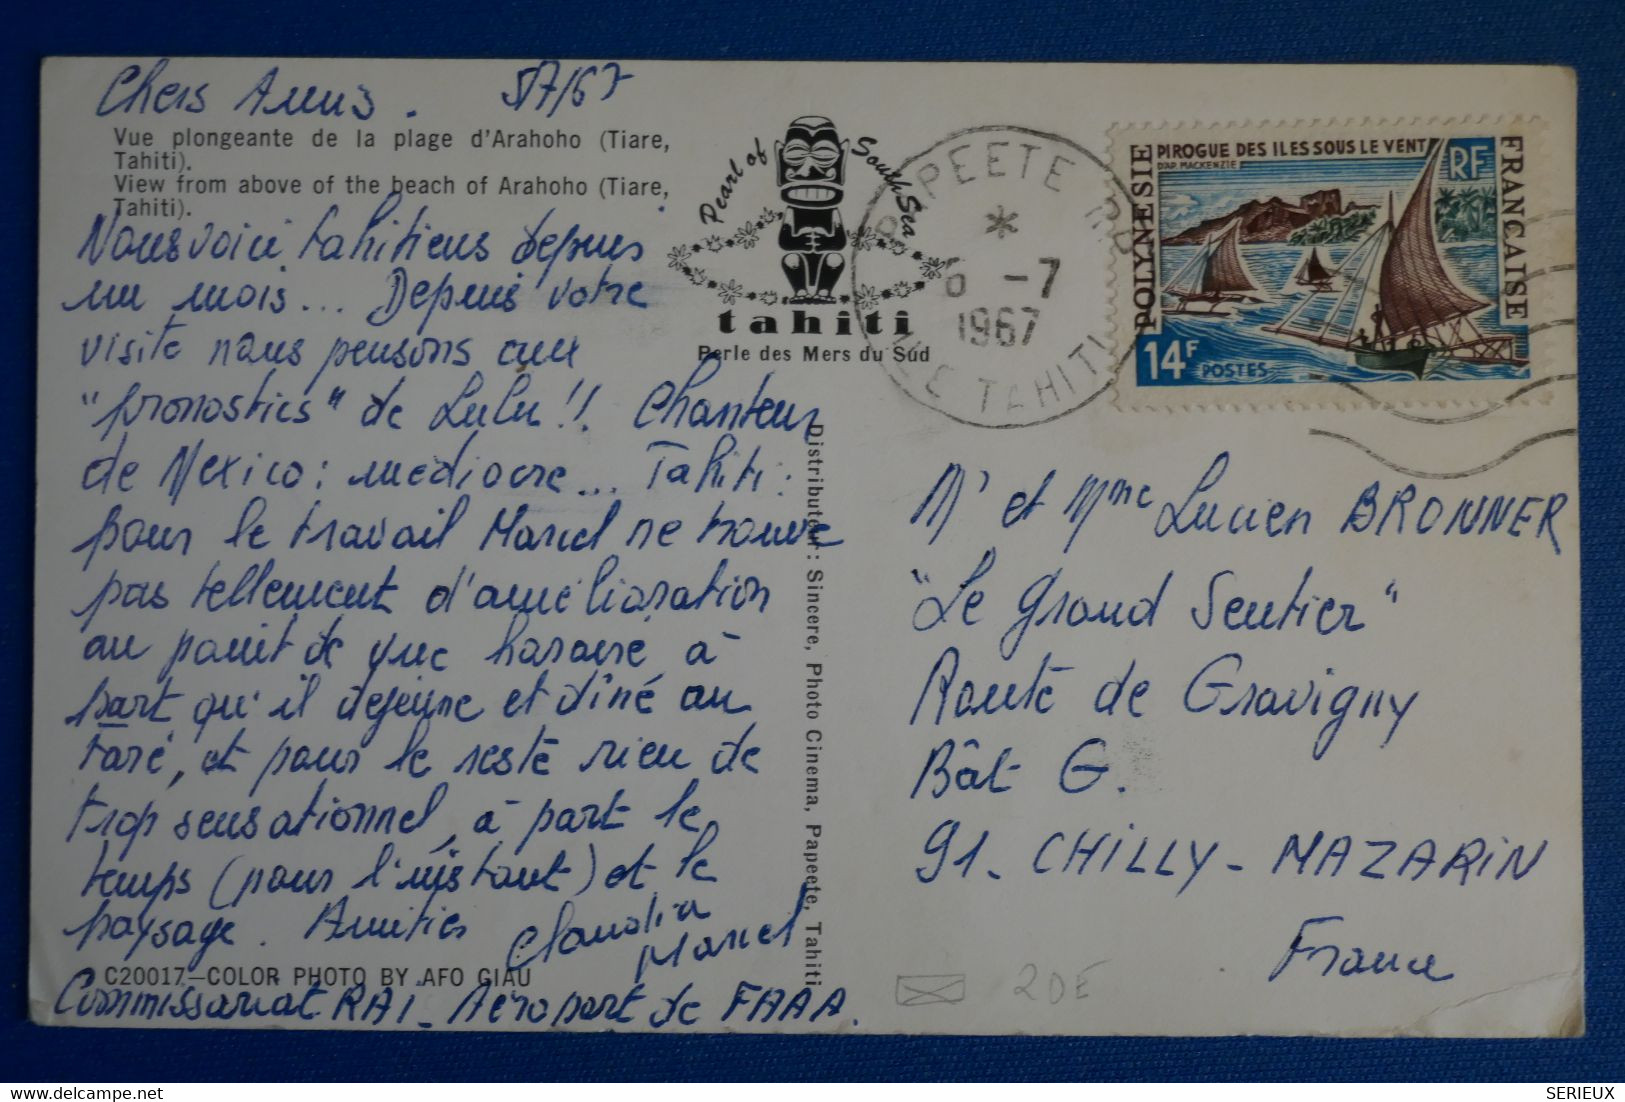 Chers Amis. 5/7/67
Vue plongeante de la plage d'Arahoho (Tiare,
Tahiti).
View from above of the beach of Arahoho (Tiare,
Tahiti).
Nous voici tahitiens depuis
un mois... Depuis votre
visite nous pensons aux
"pronostics" de Lulu!! Chanteur
de Mexico: médiocre... Tahiti:
pour le travail Marcel ne trouve
pas tellement d'amélioration
au point de vue horaire à
part qu'il déjeune et dîne au
faré, et pour le reste rien de
trop sensationnel, à part le
temps (pour l'instant) et le
paysage. Amitiés Claudia
Marcel
C20017—COLOR PHOTO BY AFO GIAU
Commissariat RAI - Aéroport de FAAA.
Pearl of South Sea
tahiti
Perle des Mers du Sud
PAPEETE RP
*
6 -7
1967
ILE TAHITI
POLYNESIE
FRANÇAISE
PIROGUE DES ILES SOUS LE VENT
D'AP. MACKENZIE
RF
14F POSTES
Distributeur: Sincere, Photo Cinema, Papeete, Tahiti
Mr et Mme Lucien BRONNER
"Le Grand Sentier"
Route de Gravigny
Bât G.
91- CHILLY-MAZARIN
France
20E
SERIEUX
delcampe.net